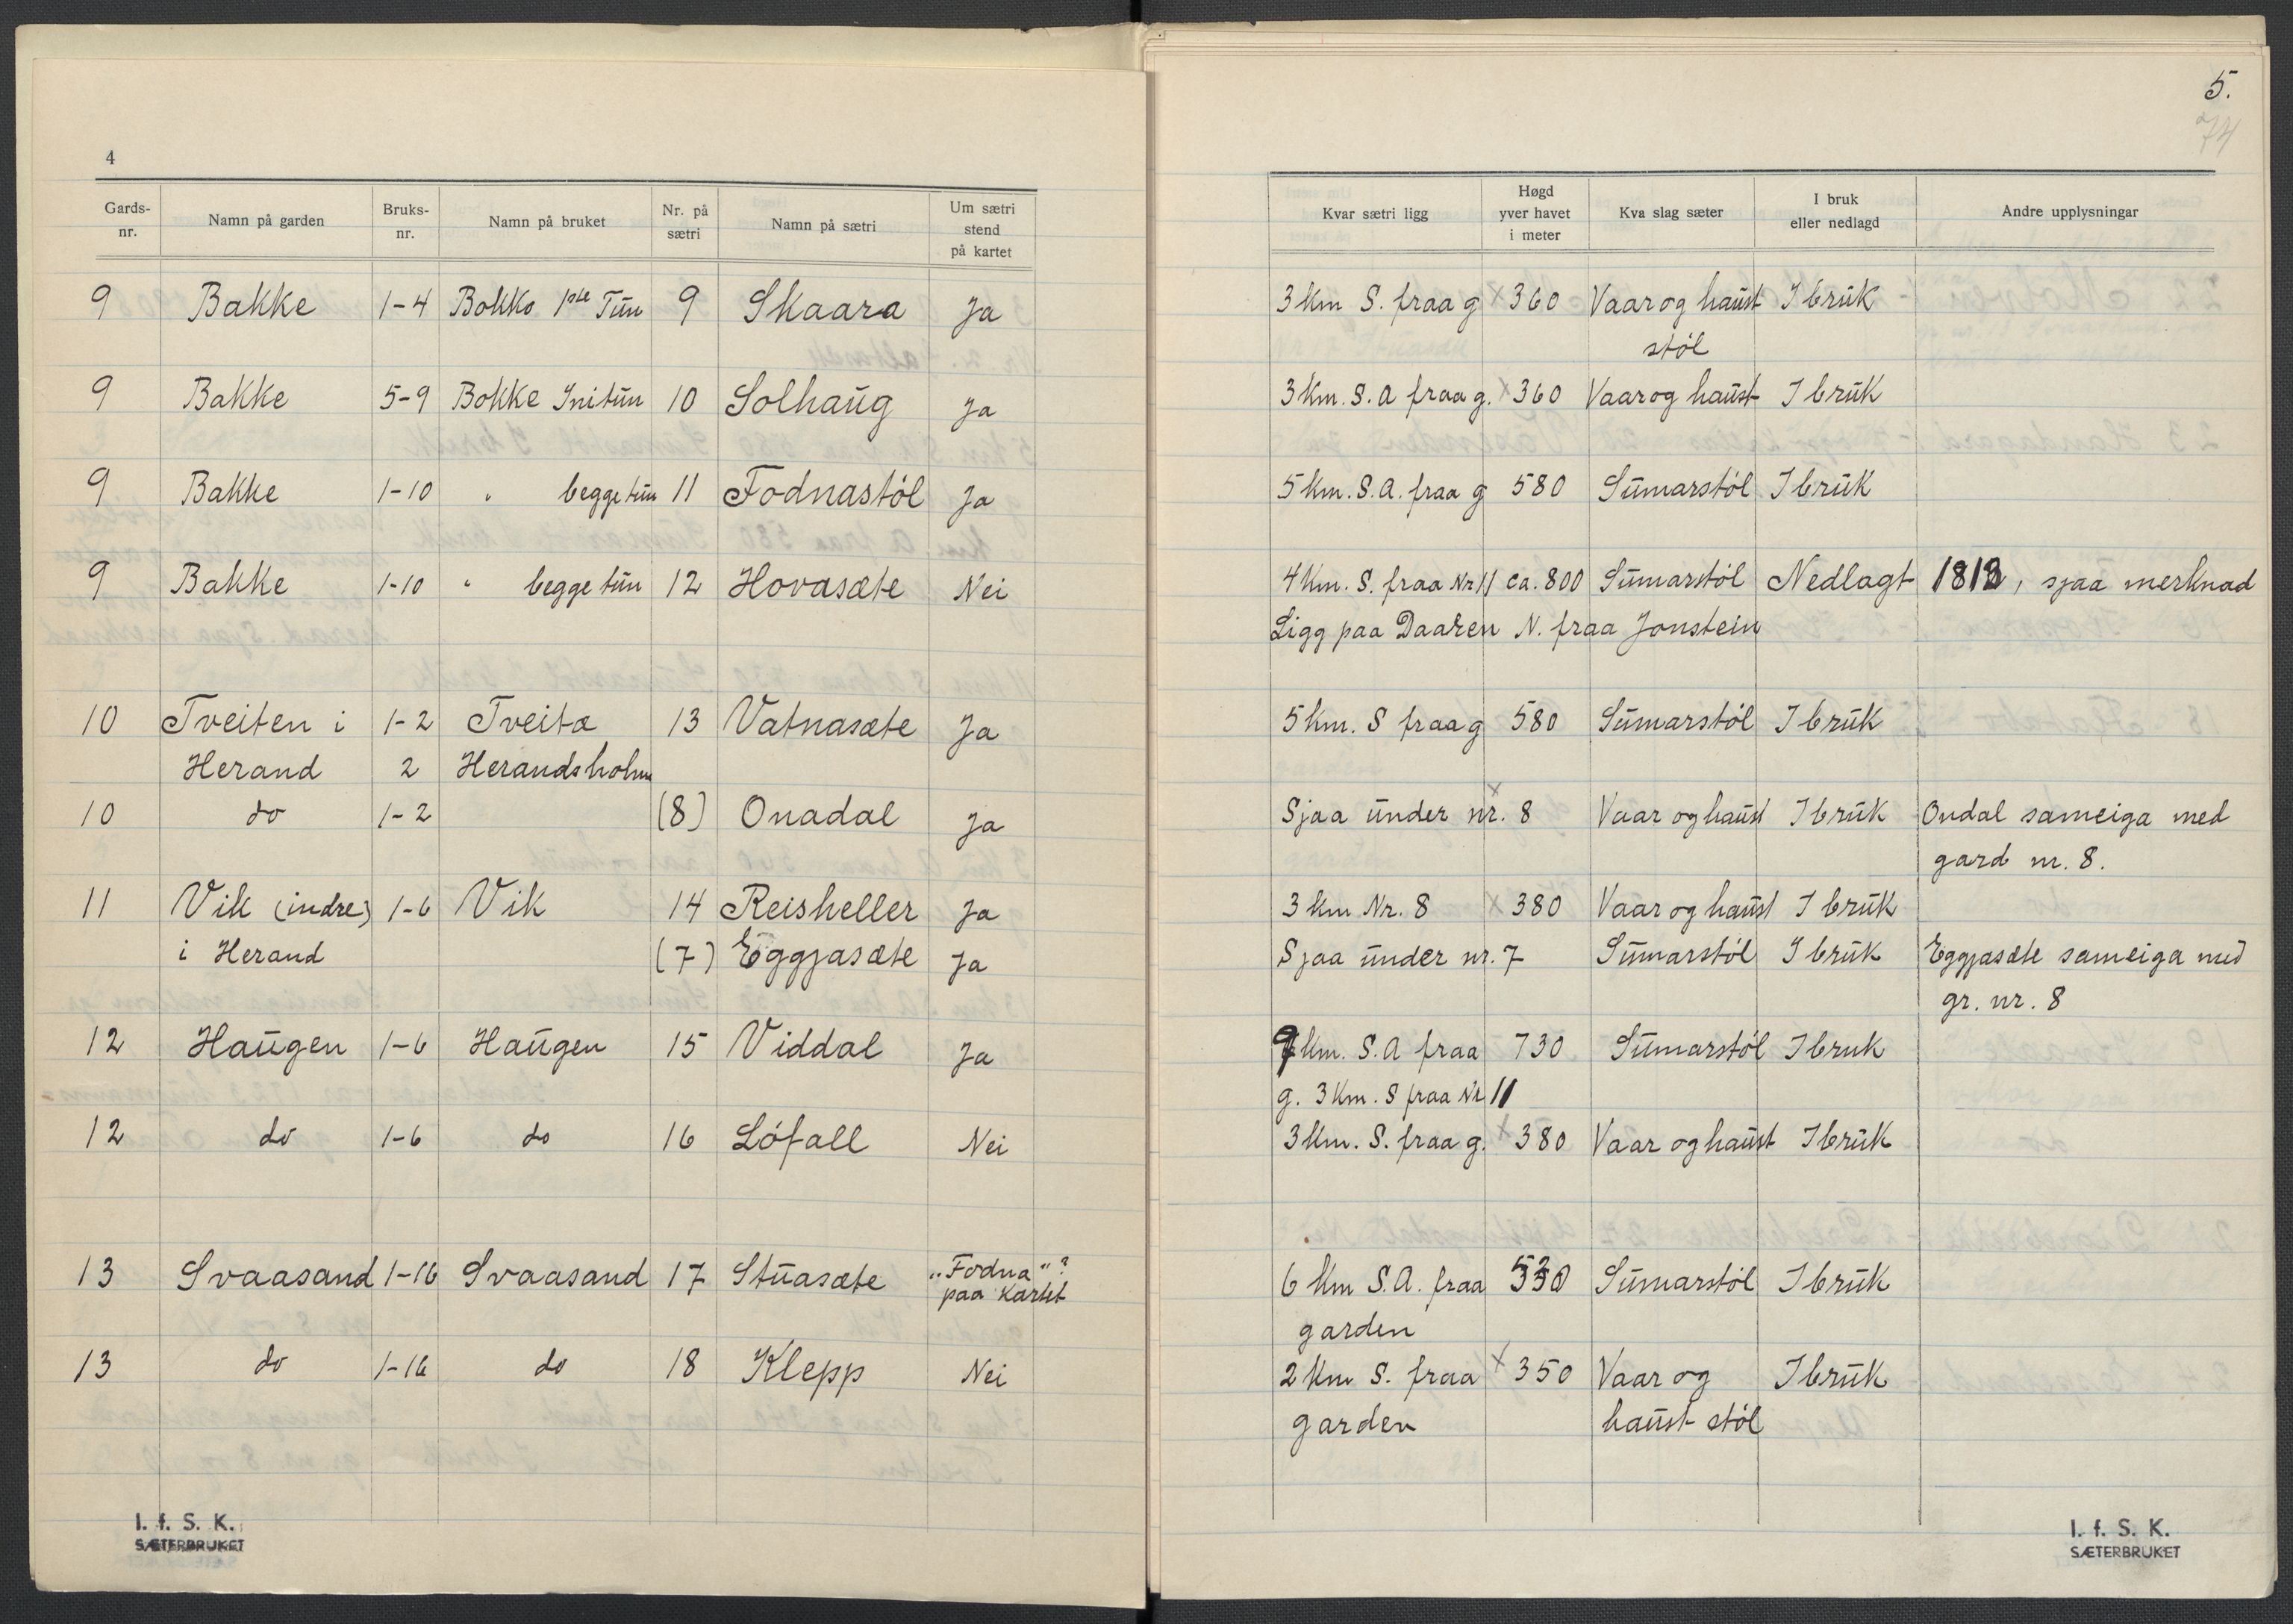 4
Gards-nr. Namn på garden Bruks-nr. Namn på bruket Nr. på sætri Namn på sætri Um sætri stend på kartet
9 Bakke 1-4 Bokko 1ste Tūn 9 Skaara Ja
9 Bakke 5-9 Bokke Initūn 10 Solhaūg Ja
9 Bakke 1-10 " begge tūn 11 Fodnastöl Ja
9 Bakke 1-10 " begge tūn 12 Hovasæte Nei
10 Tveiten i 1-2 Tveita 13 Vatnasæte Ja
Herand 2 Herandsholm
10 do 1-2 (8) Onadal Ja
11 Vik (indre) 1-6 Vik 14 Reisheller Ja
i Herand (7) Eggjasæte Ja
12 Haūgen 1-6 Haūgen 15 Viddal Ja
12 do 1-6 do 16 Löfall Nei
13 Svaasand 1-16 Svaasand 17 Stūasæte "Fodna"?
paa kartet
13 do 1-16 do 18 Klepp Nei
I. f. S. K.
SÆTERBRUKET
5.
74
Kvar sætri ligg Høgd yver havet i meter Kva slag sæter I bruk eller nedlagd Andre upplysningar
3 km S. fraa g x 360 Vaar og haūst I brūk
stöl
3 km. S. A fraa g. x 360 Vaar og haūst I brūk
5 km. S. A. fraa g 580 Sūmarstöl I brūk
4 km. S. fraa Nr 11 ca. 800 Sūmarstöl Nedlagt 1813, sjaa merknad
Ligg paa Daaren N. fraa Jonstein
5 km. S fraa g 580 Sūmarstöl I brūk
Sjaa ūnder nr. 8 x Vaar og haūst I brūk Ondal sameiga med
gard nr. 8.
3 km Nr. 8 x 380 Vaar og haūst I brūk
Sjaa ūnder nr. 7 Sūmarstöl I brūk Eggjasæte sameiga med
gr. nr. 8
9 km. S. A fraa 730 Sūmarstöl I bruk
g. 3 km. S fraa Nr 11
3 km. S. fraa g. x 380 Vaar og haūst I brūk
6 km S. A. fraa 530 Sūmarstöl I brūk
garden
2 km S. fraa x 350 Vaar og I brūk
garden haūst stöl
I. f. S. K.
SÆTERBRUKET